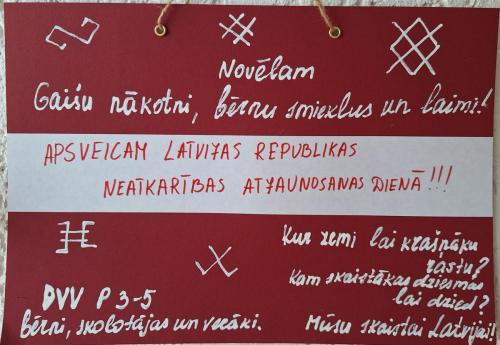 Novēlam
Gaišu nākotni, bērnu smieklus un laimi!
APSVEICAM LATVIJAS REPUBLIKAS
NEATKARĪBAS ATJAUNOŠANAS DIENĀ!!!
Kur zemi lai krašņāku
rastu?
Kam skaistākas dziesmas
lai dzied?
Mūsu skaistai Latvijai!
DVV P 3-5
bērni, skolotājas un vecāki.